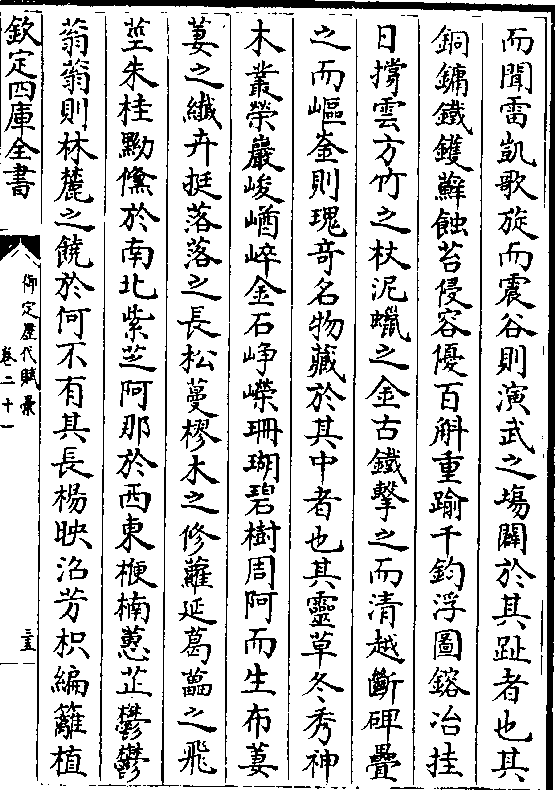 而聞雷凱歌旋而震谷則演武之場闢於其趾者也其
銅鏞鐵鑊蘚蝕苔侵容優百斛重踰千鈞浮圖鎔冶挂
日撐雲方竹之杖泥蠟之金古鐵擊之而清越斷碑疊
之而嶇崟則瑰奇名物藏於其中者也其靈草冬秀神
木叢榮巖峻崷崪金石崢嶸珊瑚碧樹周阿而生布萋
萋之纖卉挺落落之長松蔓樛木之修蘿延葛藟之飛
莖朱桂黝儵於南北紫芝阿那於西東楩楠蕙芷鬱鬱
蓊蓊則林麓之饒於何不有其長楊映沼芳枳編籬植
欽定四庫全書
御定歷代賦彙
卷二十一
三五